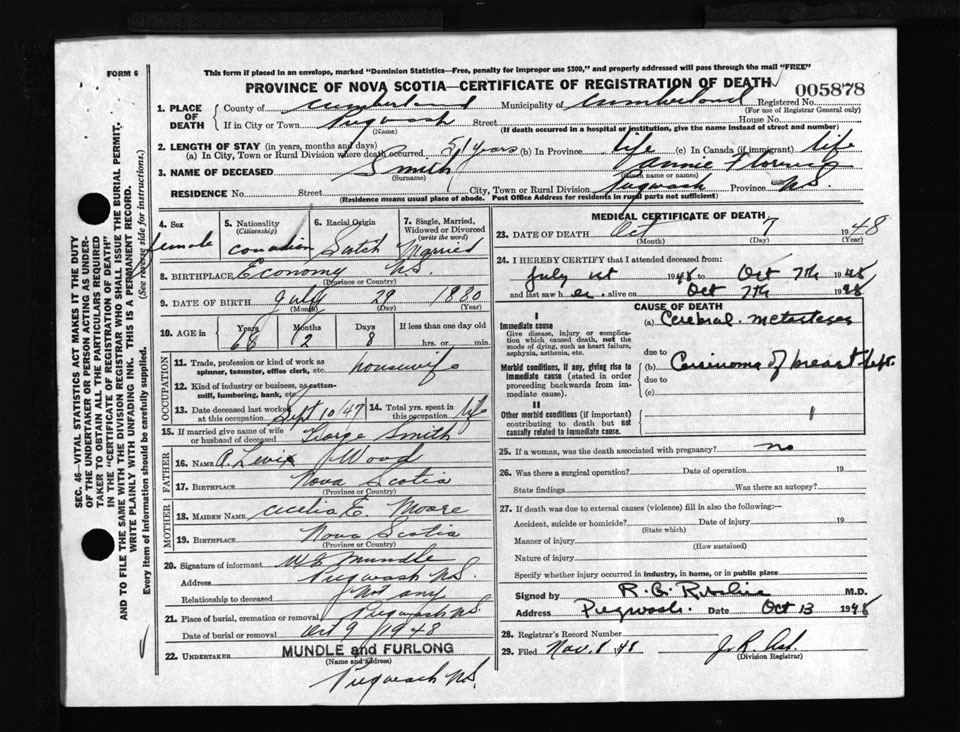 FORM 6
This form if placed in an envelope, marked "Dominion Statistics—Free, penalty for improper use $300," and properly addressed will pass through the mail "FREE"
PROVINCE OF NOVA SCOTIA—CERTIFICATE OF REGISTRATION OF DEATH
005878
1. PLACE OF DEATH County of Cumberland Municipality of Cumberland Registered No.
(For use of Registrar General only)
If in City or Town Pugwash Street House No.
(Name) (If death occurred in a hospital or institution, give the name instead of street and number)
2. LENGTH OF STAY (in years, months and days)
(a) In City, Town or Rural Division where death occurred 51 years (b) In Province life (c) In Canada (if immigrant) life
3. NAME OF DECEASED Smith Annie Florence
(Surname) (Given name or names)
RESIDENCE No. Street City, Town or Rural Division Pugwash Province N.S.
(Residence means usual place of abode. Post Office Address for residents in rural parts not sufficient)
4. Sex female
5. Nationality (Citizenship) Canadian
6. Racial Origin Scotch
7. Single, Married, Widowed or Divorced (write the word) Married
8. BIRTHPLACE Economy N.S.
(Province or Country)
9. DATE OF BIRTH July 29 1880
(Month) (Day) (Year)
10. AGE in Years 68 Months 2 Days 8 If less than one day old hrs. or min.
11. Trade, profession or kind of work as spinner, teamster, office clerk, etc. housewife
12. Kind of industry or business, as cotton-mill, lumbering, bank, etc.
13. Date deceased last worked at this occupation Sept 10/47
14. Total yrs. spent in this occupation life
15. If married give name of wife or husband of deceased George Smith
FATHER
16. NAME Wood
17. BIRTHPLACE Nova Scotia
(Province or Country)
MOTHER
18. MAIDEN NAME Cecelia E. Moore
19. BIRTHPLACE Nova Scotia
(Province or Country)
20. Signature of informant Mundle
Address Pugwash N.S.
Relationship to deceased Not any
21. Place of burial, cremation or removal Pugwash N.S.
Date of burial or removal Oct 9 / 1948
22. UNDERTAKER MUNDLE and FURLONG
(Name and address)
Pugwash N.S.
MEDICAL CERTIFICATE OF DEATH
23. DATE OF DEATH Oct 7 1948
(Month) (Day) (Year)
24. I HEREBY CERTIFY that I attended deceased from:
July 1st 1948 to Oct 7th 1948
and last saw h er alive on Oct 7th 1948
CAUSE OF DEATH
I
Immediate cause
Give disease, injury or complication which caused death, not the mode of dying, such as heart failure, asphyxia, asthenia, etc.
(a) Cerebral metastases
due to
Morbid conditions, if any, giving rise to immediate cause (stated in order proceeding backwards from immediate cause).
Carcinoma of breast left.
due to
(c)
II
Other morbid conditions (if important) contributing to death but not causally related to immediate cause.
25. If a woman, was the death associated with pregnancy? no
26. Was there a surgical operation? Date of operation 19
State findings Was there an autopsy?
27. If death was due to external causes (violence) fill in also the following:—
Accident, suicide or homicide? Date of injury 19
(State which)
Manner of injury
(How sustained)
Nature of injury
Specify whether injury occurred in industry, in home, or in public place
Signed by M.D.
Address Pugwash. Date Oct 13 1948
28. Registrar's Record Number
29. Filed Nov. 8 '48 J. R.
(Division Registrar)
SEC. 46—VITAL STATISTICS ACT MAKES IT THE DUTY
OF THE UNDERTAKER OR PERSON ACTING AS UNDER-
TAKER TO OBTAIN ALL THE PARTICULARS REQUIRED
IN THE "CERTIFICATE OF REGISTRATION OF DEATH"
AND TO FILE THE SAME WITH THE DIVISION REGISTRAR WHO SHALL ISSUE THE BURIAL PERMIT.
WRITE PLAINLY WITH UNFADING INK. THIS IS A PERMANENT RECORD.
Every item of information should be carefully supplied. (See reverse side for instructions.)